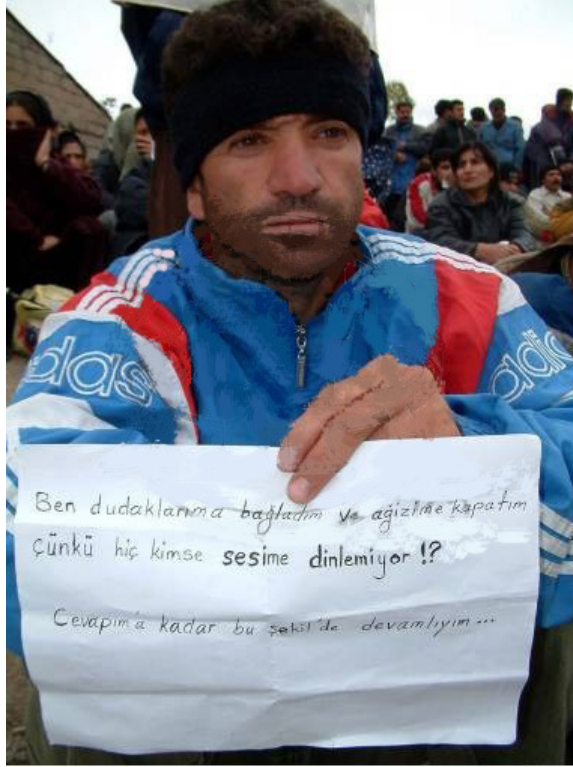 das
adid
Ben dudaklarıma bağladım ve ağizime kapatım
çünkü hiç kimse sesime dinlemiyor !?
Cevapım'a kadar bu şekil'de devamlıyım...